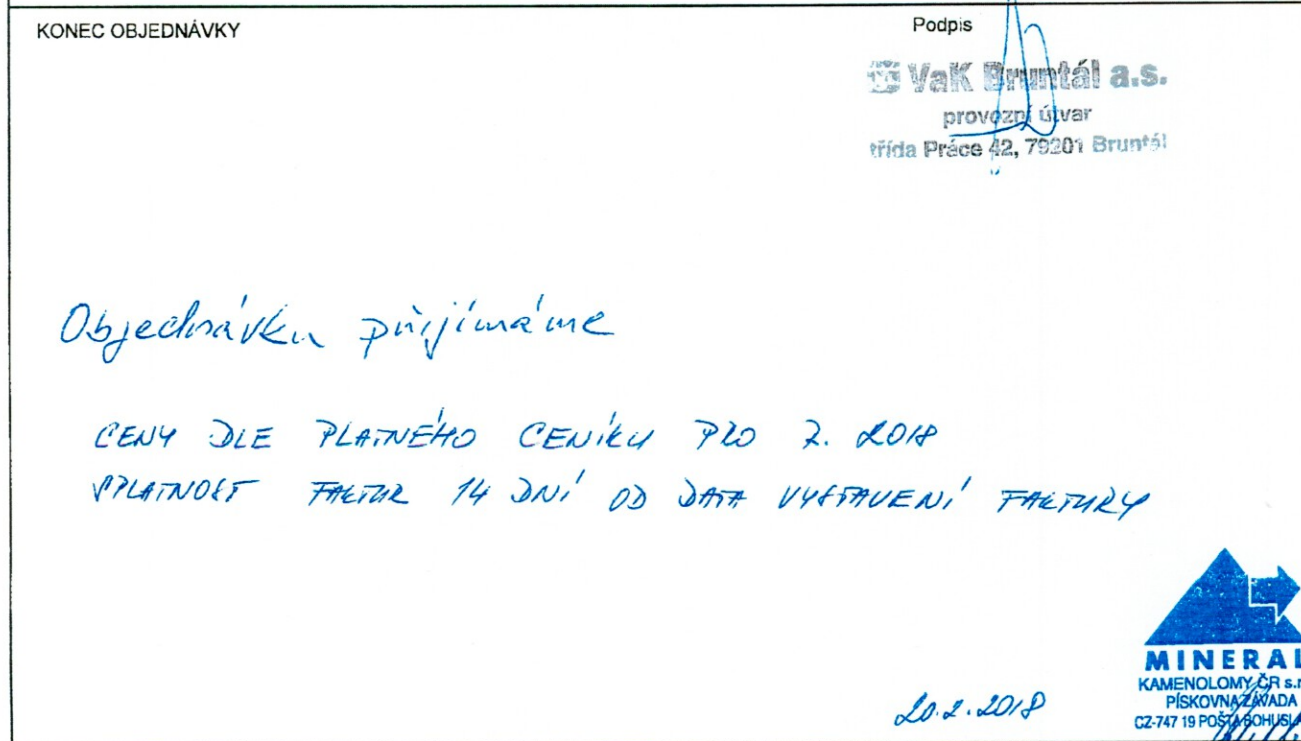 KONEC OBJEDNÁVKY
Podpis
VaK Bruntál a.s.
provozní útvar
třída Práce 42, 79201 Bruntál
Objednávku přijímáme
CENY DLE PLATNÉHO CENÍKU PRO R. 2018
SPLATNOST FAKTUR 14 DNÍ OD DATA VYSTAVENÍ FAKTURY
20.2.2018
MINERAL
KAMENOLOMY ČR s.r
PÍSKOVNA ZÁVADA
CZ-747 19 POŠTA BOHUSLA